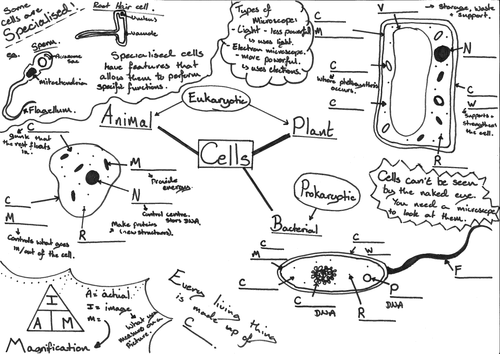 Some
cells are
Specialised!
Root Hair cell.
Nucleus
Vacuole
Sperm
Acrosome
Sac
Mitochondrion
Flagellum.
Specialised cells
have features that
allow them to perform
specific functions.
Types of
Microscope:
- Light - less powerful
is uses light.
- Electron microscope.
- more powerful.
is uses electrons.
V
→ Storage, waste
+ support.
C
M
C
Where photosynthesis
occurs.
C
N
C
C
W
Supports +
strengthens the
cell.
R
Eukaryotic
Animal
Plant
Cells
Prokaryotic
Bacterial
C
→ gunk that
the rest floats
in.
M
Provide
energy.
N
Control centre.
stores DNA.
R
Make proteins
(new structures).
C
M
Controls what goes
in/out of the cell.
Cells can't be seen
by the naked eye.
You need a microscope
to look at them.
C
M
C
W
C
C
DNA
R
P
DNA
F
I
A M
A = actual.
I = image
M =
what you
measure on a
picture.
Magnification
Every living thing
is made up of
C